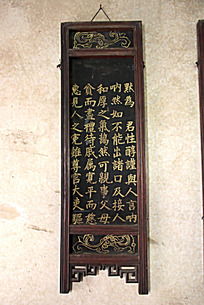 默為　君性醇謹與人言吶
吶然如不能出諸口及接人
和厚之氣藹然可親事父母
貧而盡禮待戚属寬平而慈
愚見人之寃雖尊官大吏